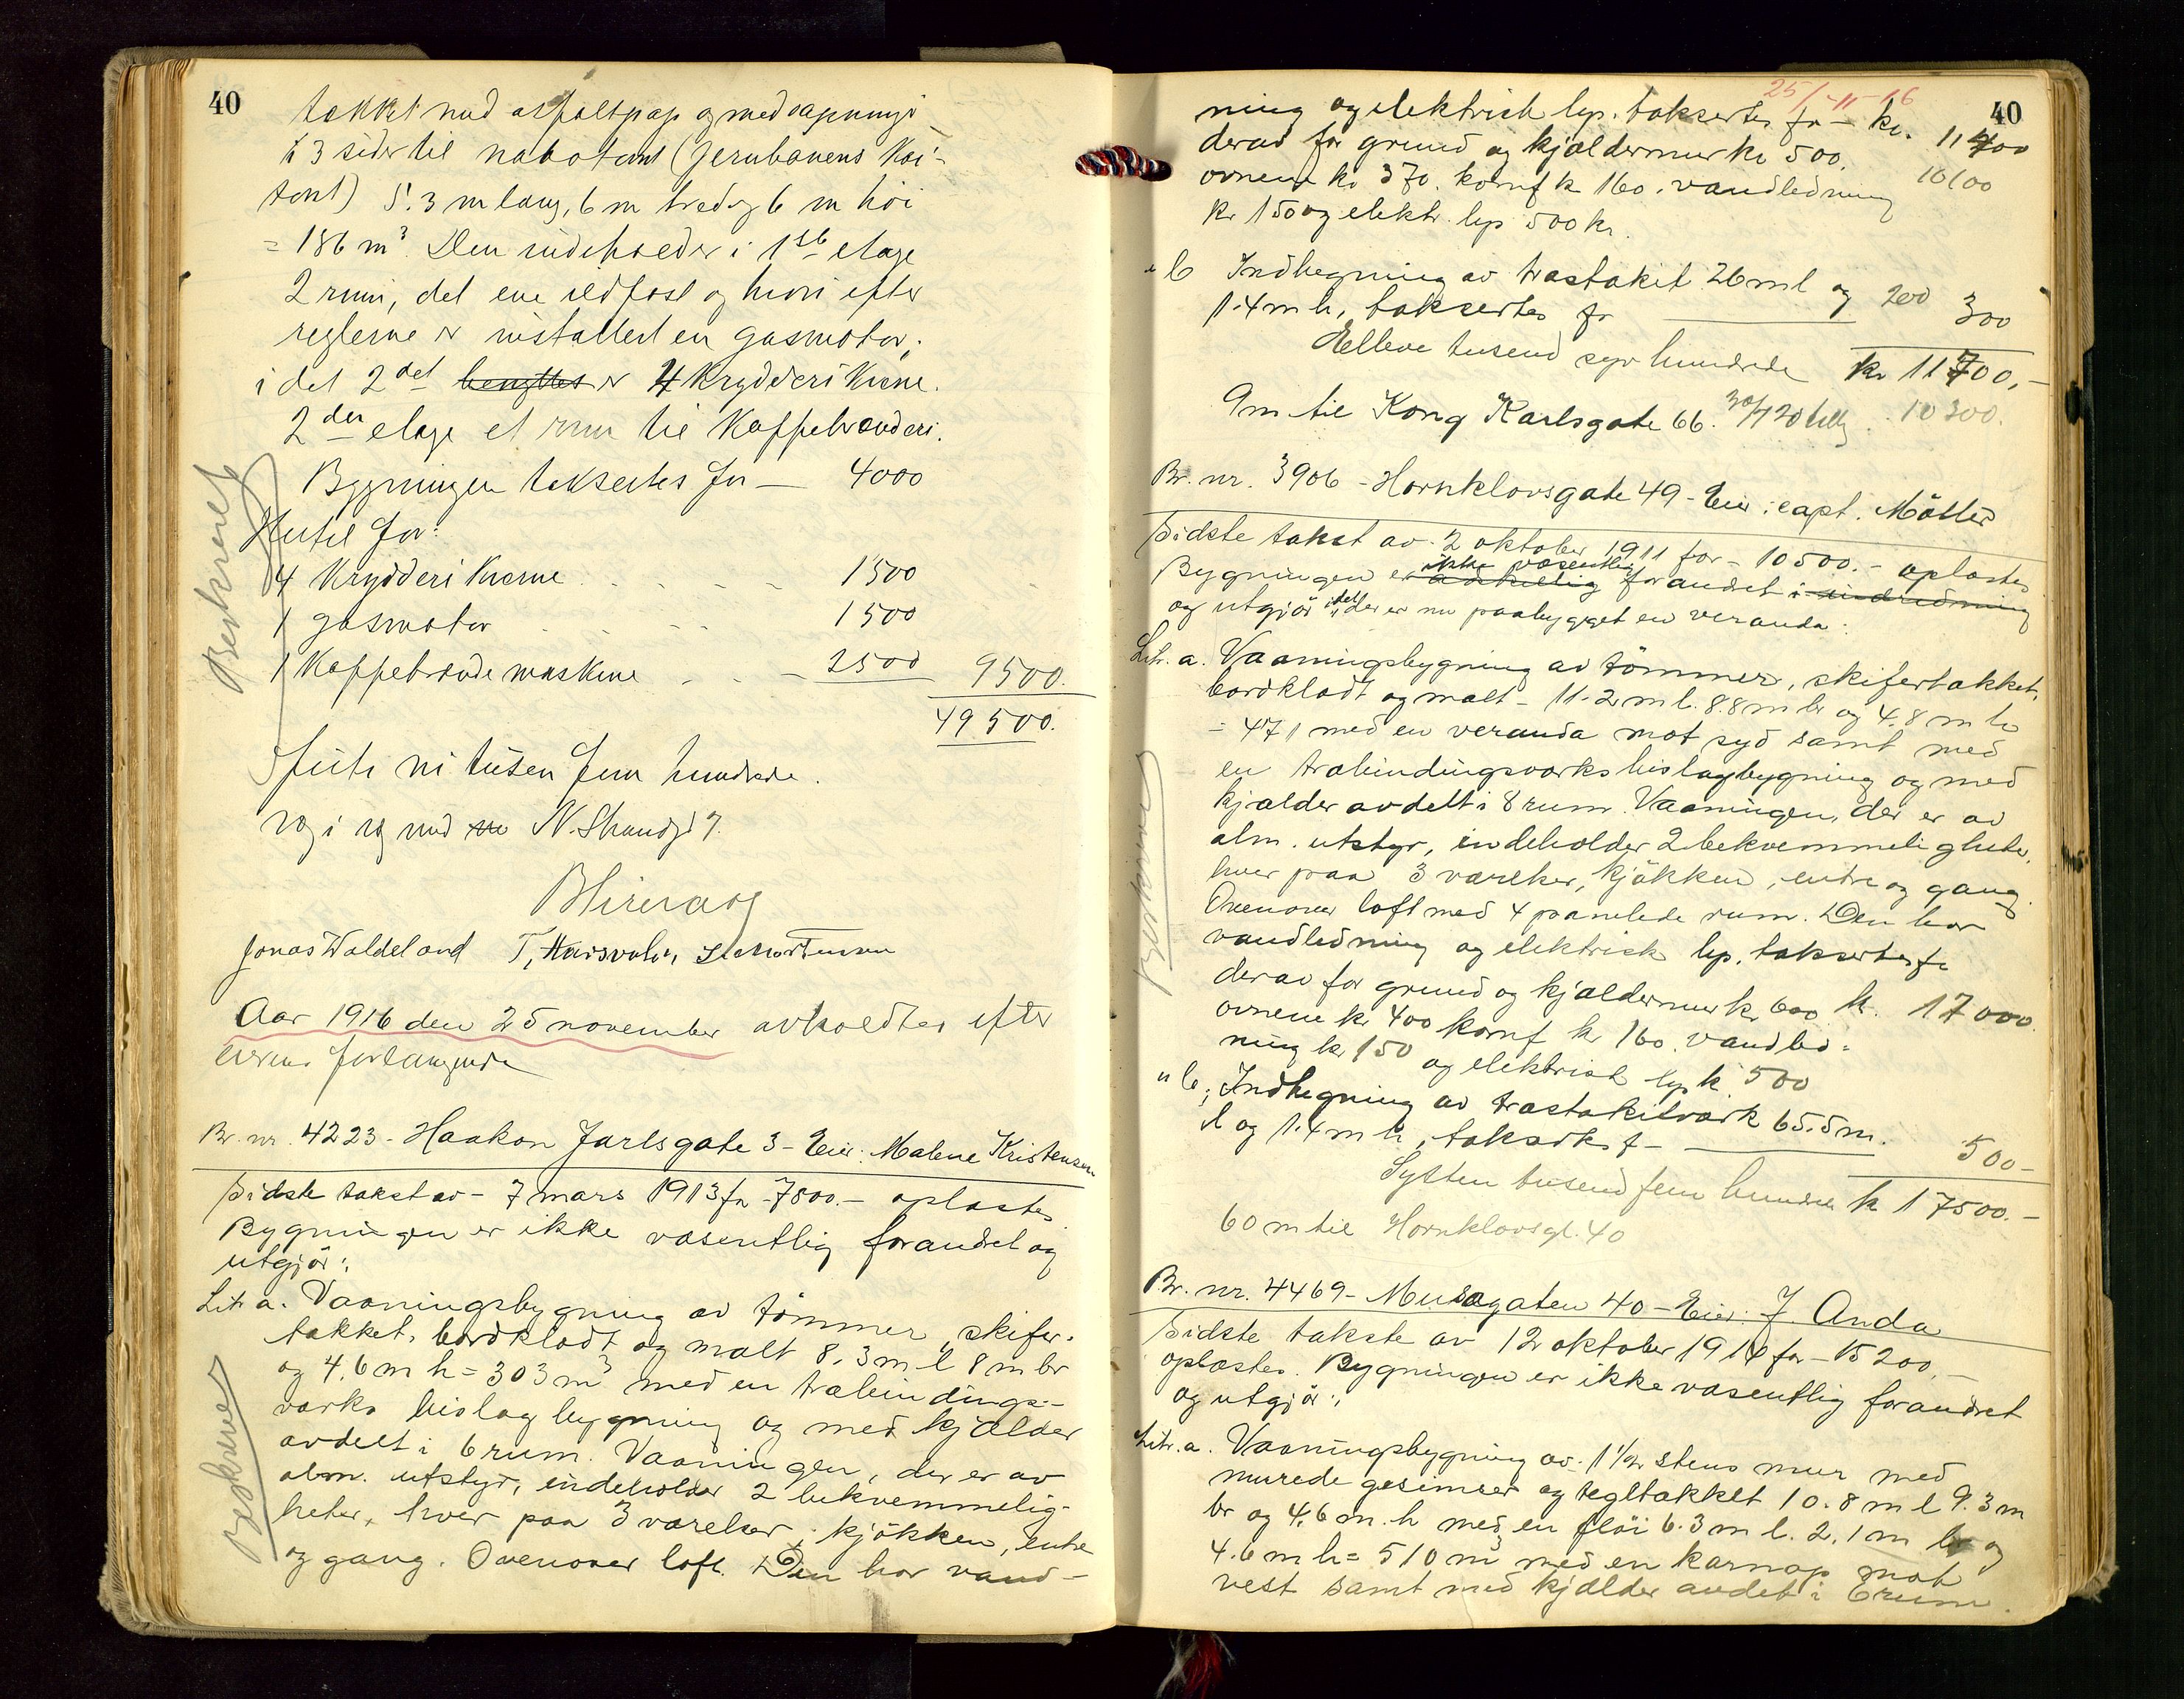 40
tækket med asfaltpap og med aapninger
i 3 sider til nabotomt (Jernbanens Kai-
tomt) 5.3 m lang, 6 m bred og 6 m høi
= 186 m³. Den indeholder i 1ste etage
2 rum, det ene ildfast og hvori efter
reglerne er installert en gasmotor;
i det 2det benyttes er 4 krydderikverne.
2den etage et rum til Kaffebrænderi.
Bygningen takseres for — 4000
Hertil for:
4 Krydderikverne . . . . 1500
1 gasmotor . . . . 1500
1 Kaffebrændemaskine . . . 2500 9500.
49500.
Førti ni tusen fem hundrede.
væg i væg med no N. Strandgt 7.
Beskrevet
Jonas Waldeland T. Haarsvolen
Aar 1916 den 25 november avholdtes efter
eierens forlangende
Br. nr. 4223 - Haakon Jarlsgate 3 - Eier: Malene Kristensen
Sidste takst av - 7 mars 1913 for - 7800.- oplæstes
Bygningen er ikke væsentlig forandret og
utgjör:
Litr a. Vaaningsbygning av tömmer, skifer-
tækket, bordklædt og malt 8.3 m l 8 m br
og 4.6 m h = 303 m³ med en træbindings-
værks bislagbygning og med kjælder
avdelt i 6 rum. Vaaningen, der er av
alm. utstyr, indeholder 2 bekvemmelig-
heter, hver paa 3 værelser, kjökken, entre
og gang. Ovenover loft. Den har vand-
Beskrevet
25/-11-16
40
ning og elektrisk lys, takseres for - kr. 11400
derav for grund og kjældermur kr 500. 10100
ovnene kr 370. komf kr 160. vandledning
kr 150 og elektr. lys 500 kr.
" b Indhegning av træstakit 26 m l og 200
1.4 m h, takseres for 300
Elleve tusend syv hundrede kr 11700,-
9 m til Kong Karlsgate 66. 30/7 20 10300.
Br. nr. 3906 - Hornklovsgate 49 - Eier: capt. Möller
Sidste takst av 2 oktober 1911 for - 10500.- oplæstes
Bygningen er adskillig ikke væsentlig forandret i indredning
og utgjör idet der er nu paabygget en veranda:
Litr. a. Vaaningsbygning av tömmer, skifertækket,
bordklædt og malt - 11.2 m l. 8.8 m br og 4.8 m h
= 471 med en veranda mot syd samt med
en træbindingsværks bislagbygning og med
kjælder avdelt i 8 rum. Vaaningen, der er av
alm. utstyr, indeholder 2 bekvemmeligheter,
hver paa 3 værelser, kjökken, entre og gang.
Ovenover loft med 4 panelede rum. Den har
vandledning og elektrisk lys, takseres for
derav for grund og kjældermur kr 600 kr. 17000
ovnene kr 400 komf kr 160. vandled-
ning kr 150 og elektrisk lys kr 500
" b, Indhegning av træstakitværk 65.5 m.
l og 1.4 m h, takseres f - 500-
Sytten tusend fem hundrede kr 17500.-
60 m til Hornklovsgt. 40
Beskrevet
Br. nr. 4469 - Musægaten 40 - Eier: J. Anda
Sidste takste av 12 oktober 1914 for - 15200.-
oplæstes. Bygningen er ikke væsentlig forandret
og utgjör:
Litr. a. Vaaningsbygning av 1 1/2 stens mur med
murede gesimser og tegltækket 10.8 m l 9.3 m
br og 4.6 m h med en flöi 6.3 m l. 2.1 m br og
4.6 m h = 510 m³ med en karnap mot
vest samt med kjælder avdelt i 6 rum.